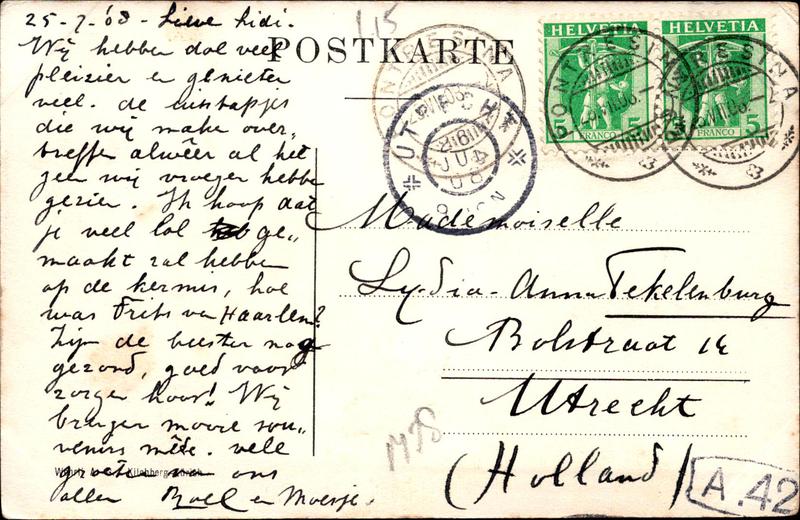 25-7-'08- Lieve Lidi.
Wij hebben dol veel
pleizier en genieten
veel. de uitstapjes
die wij maken over-
treffen alwéér al het
geen wij vroeger hebben
gezien. Ik hoop dat
je veel lol ge„
maakt zal hebben
op de kermis, hoe
was Frits van Haarlem?
Zijn de beesten nog
gezond, goed voor
zorgen hoor! Wij
brengen mooie sou„
venirs méde. vele
groeten van ons
allen Roel en Moesje.
115
POSTKARTE
HELVETIA
5 FRANCO 5
HELVETIA
5 FRANCO 5
PONTRESINA
PONTRESINA
PONTRESINA
UTRECHT
Mademoiselle
Lydia-Anna Tekelenburg
Bolstraat 14
Utrecht
(Holland)
A.42
Kilchberg-Zürich